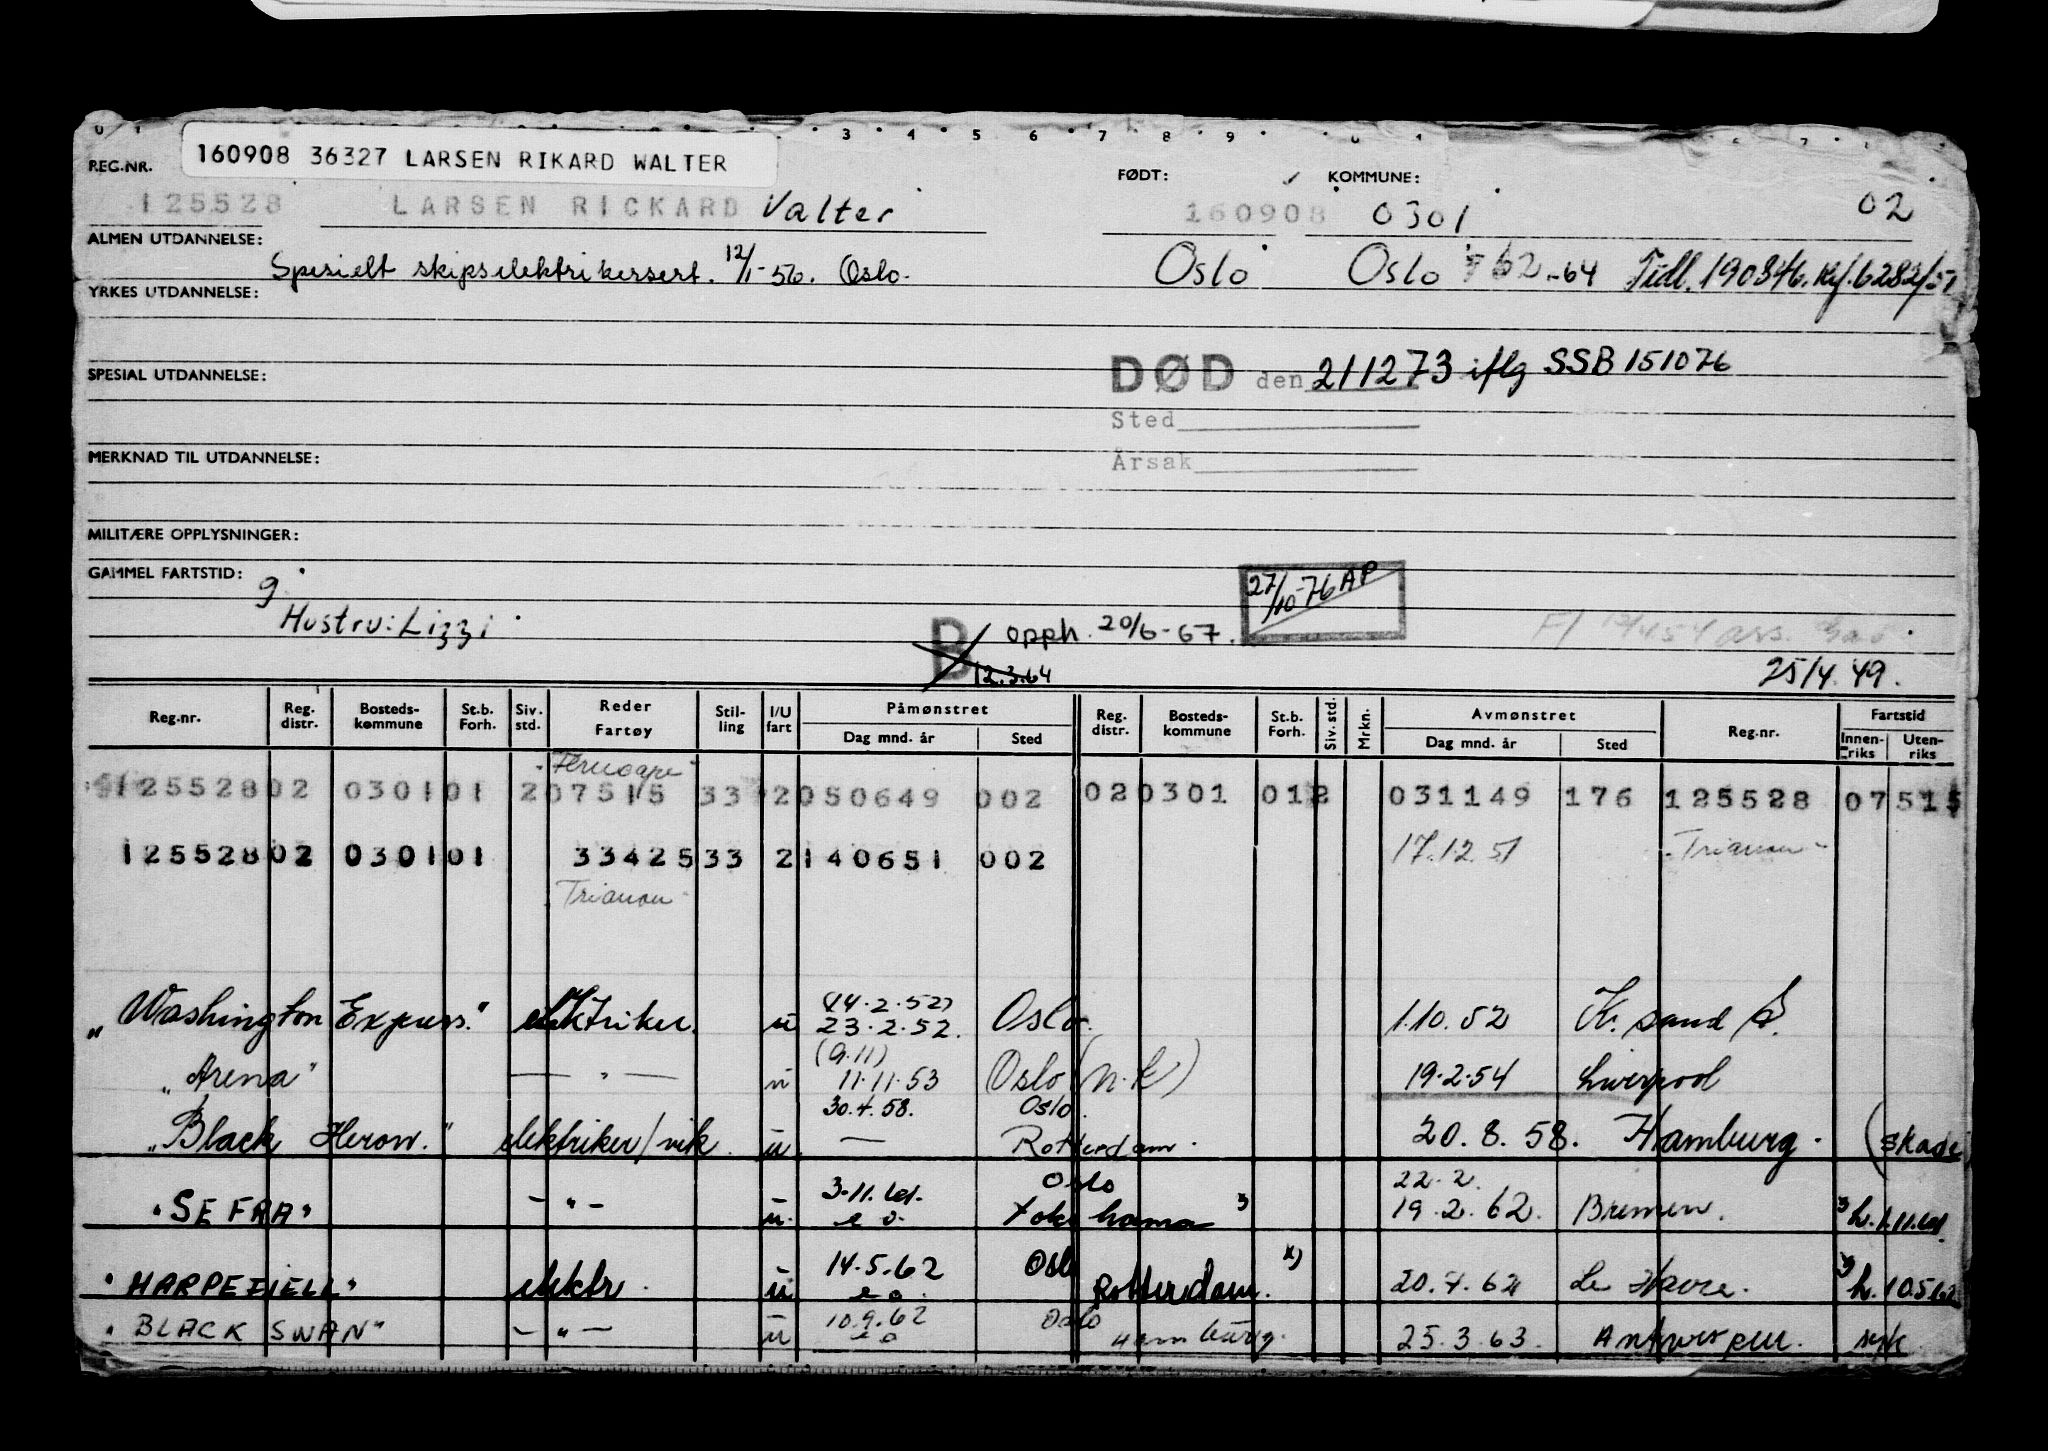 160908 36327 LARSEN RIKARD WALTER
REG.NR. FØDT: KOMMUNE:
125528 LARSEN RICKARD Valter 160908 0301 02
ALMEN UTDANNELSE: Spesielt skipselektrikersert. 12/1-56. Oslo. Oslo Oslo 62-64 Tidl. 190846.
YRKES UTDANNELSE:
DØD den 211273 iflg SSB 151076
SPESIAL UTDANNELSE:
Sted
MERKNAD TIL UTDANNELSE:
Årsak
MILITÆRE OPPLYSNINGER:
GAMMEL FARTSTID: 9
27/10-76 AP
Hustru: Lizzi
B opph. 20/6-67.
12.3.64
25/4.49.
Reg.nr. Reg. distr. Bosteds-kommune St.b. Forh. Siv. std. Reder Fartøy Stil-ling I/U fart Påmønstret Reg. distr. Bosteds-kommune St.b. Forh. Siv. std. Mrkn. Avmønstret Reg.nr. Fartstid
Dag mnd. år Sted Dag mnd. år Sted Innen-riks Uten-riks
125528 02 0301 01 2 07515 33 2 050649 002 02 0301 01 2 031149 176 125528 07515
125528 02 0301 01 33425 33 2 140651 002 17.12.51 Trianon
Trianon
(14.2.52)
"Washington Express." elektriker. u 23.2.52. Oslo. 1.10.52 Kr. sand S.
(9.11)
"Arena" — " — u 11.11.53 Oslo (n.k) 19.2.54 Liverpool
30.4.58. Oslo.
"Black Heron." elektriker/vik. u. — Rotterdam. 20.8.58. Hamburg. (skade
3.11.61. Oslo 22.2.
"SEFRA" — " — u. e o. Yokohama 19.2.62. Bremen. h. 1.11.61.
14.5.62 Oslo x)
"HARPEFJELL" elektr. u e o. Rotterdam. Le Havre. h. 10.5.62
10.9.62 Oslo
"BLACK SWAN" — " — u e o Hamburg. 25.3.63. Antwerpen. syk